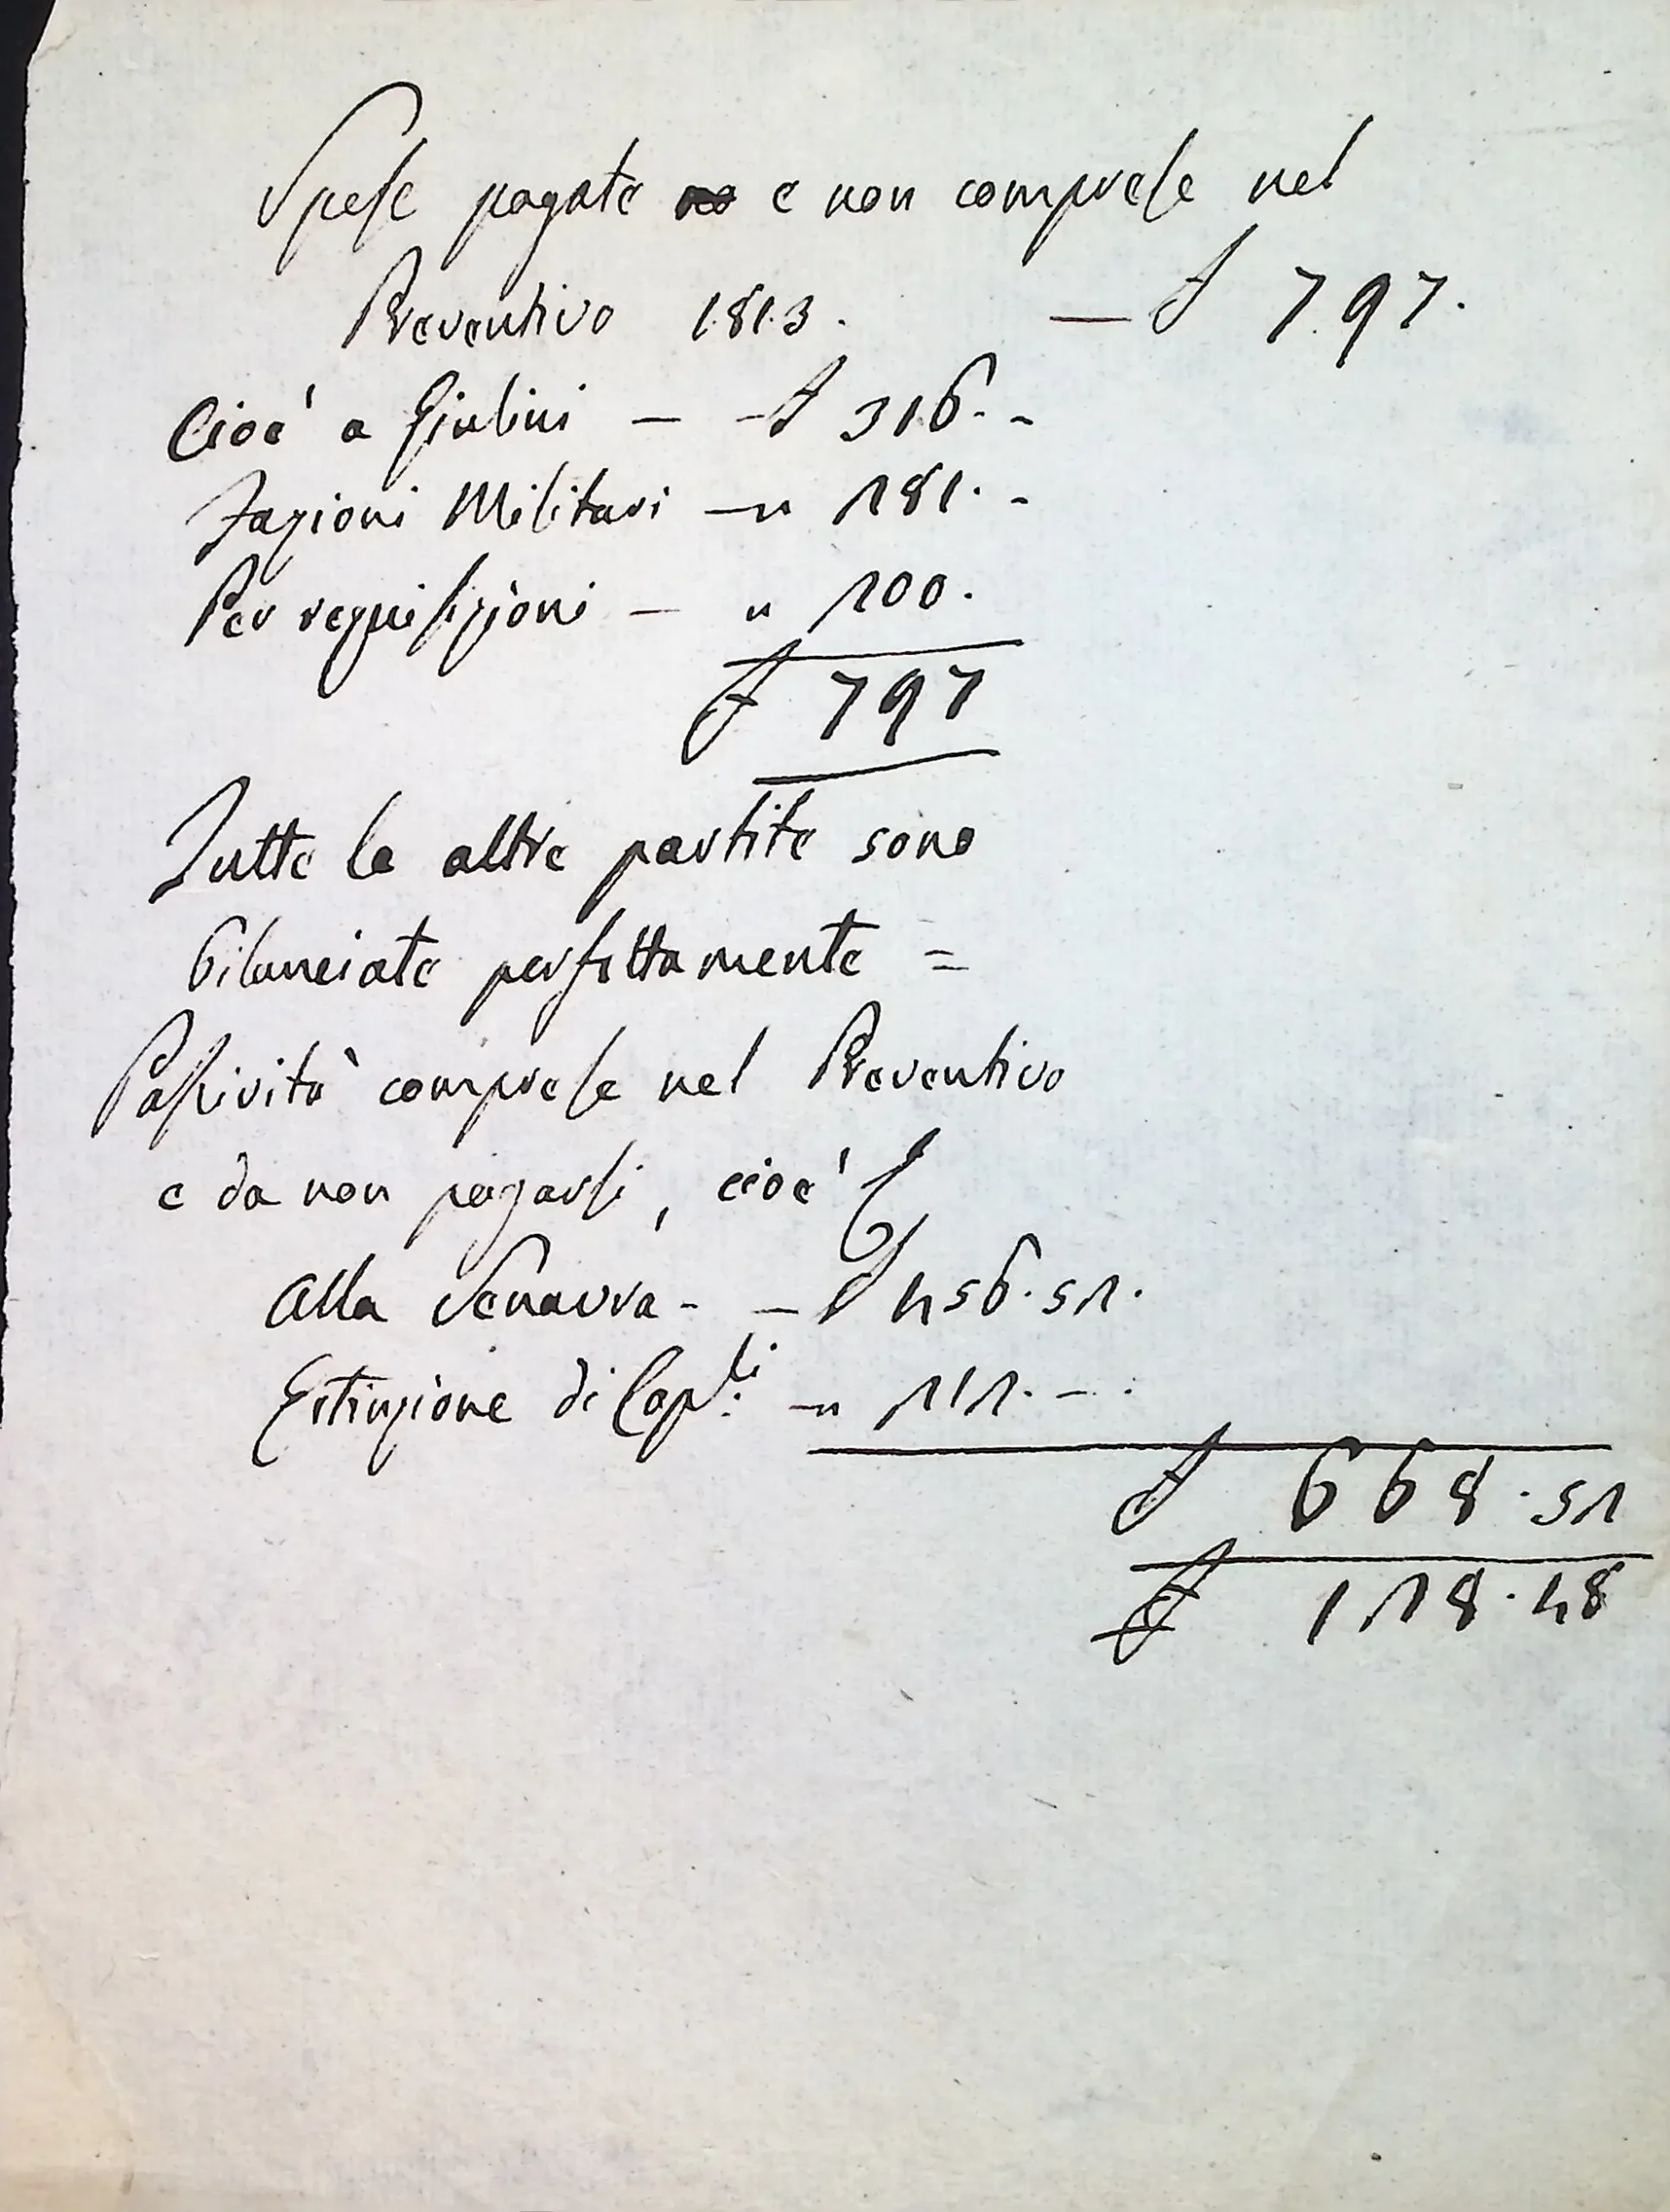 Spese pagate e non comprese nel
Preventivo 1813. — £ 797.
Cioè a Giulini — - £ 316. -
Fazioni Militari — " 281. -
Per requisizioni — " 200.
£ 797
Tutte le altre partite sono
bilanciate perfettamente =
Passività comprese nel Preventivo
e da non pagarsi, cioè
Alla Senavra - - £ 456.52.
Estinzione di Cap.li — " 212. -
£ 668.52
£ 128.48